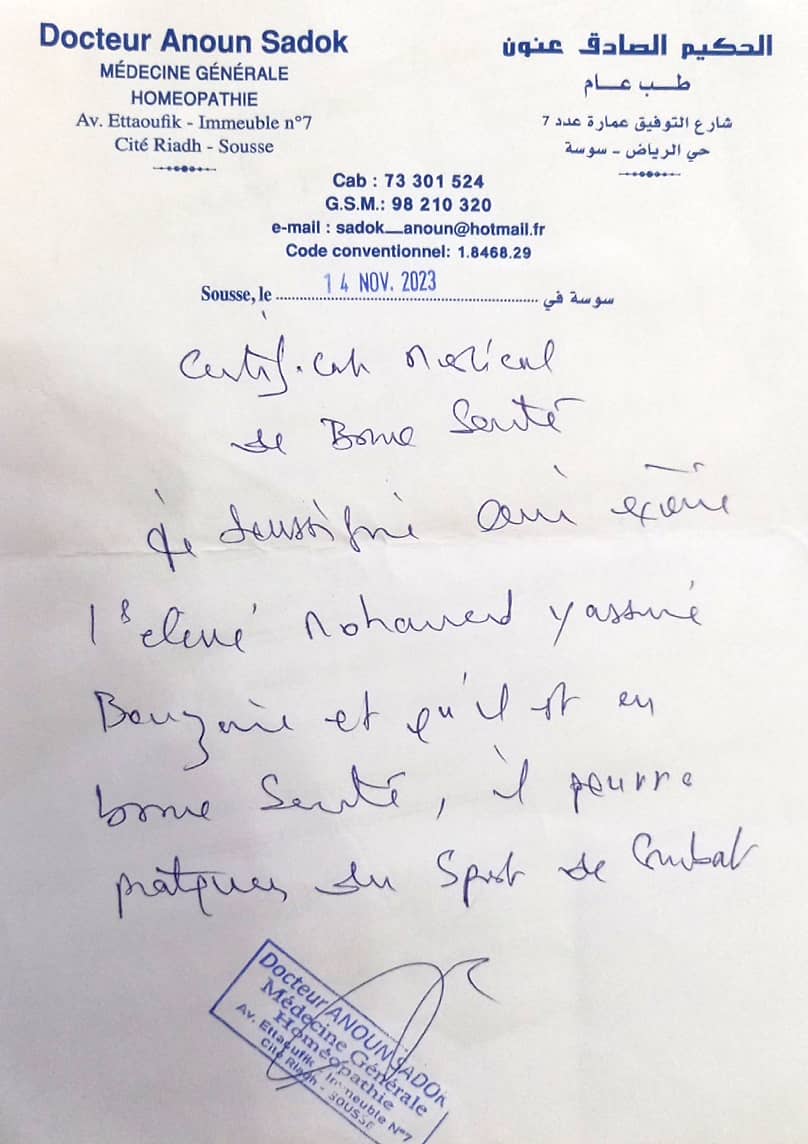 Docteur Anoun Sadok
MÉDECINE GÉNÉRALE
HOMEOPATHIE
Av. Ettaoufik - Immeuble n°7
Cité Riadh - Sousse
الحكيم الصادق عنون
طب عام
شارع التوفيق عمارة عدد 7
حي الرياض - سوسة
Cab : 73 301 524
G.S.M.: 98 210 320
e-mail : sadok_anoun@hotmail.fr
Code conventionnel: 1.8468.29
Sousse, le 14 NOV. 2023 سوسة في
Certificat Medical
de Bonne Santé
Je soussigné avoir examiné
l'élève Mohamed Yassine
et qu'il est en
bonne Santé, il pourra
pratiquer du Sport de Combat
Docteur ANOUN SADOK
Médecine Générale
Homéopathie
Av. Ettaoufik / Immeuble N°7
Cité Riadh - SOUSSE